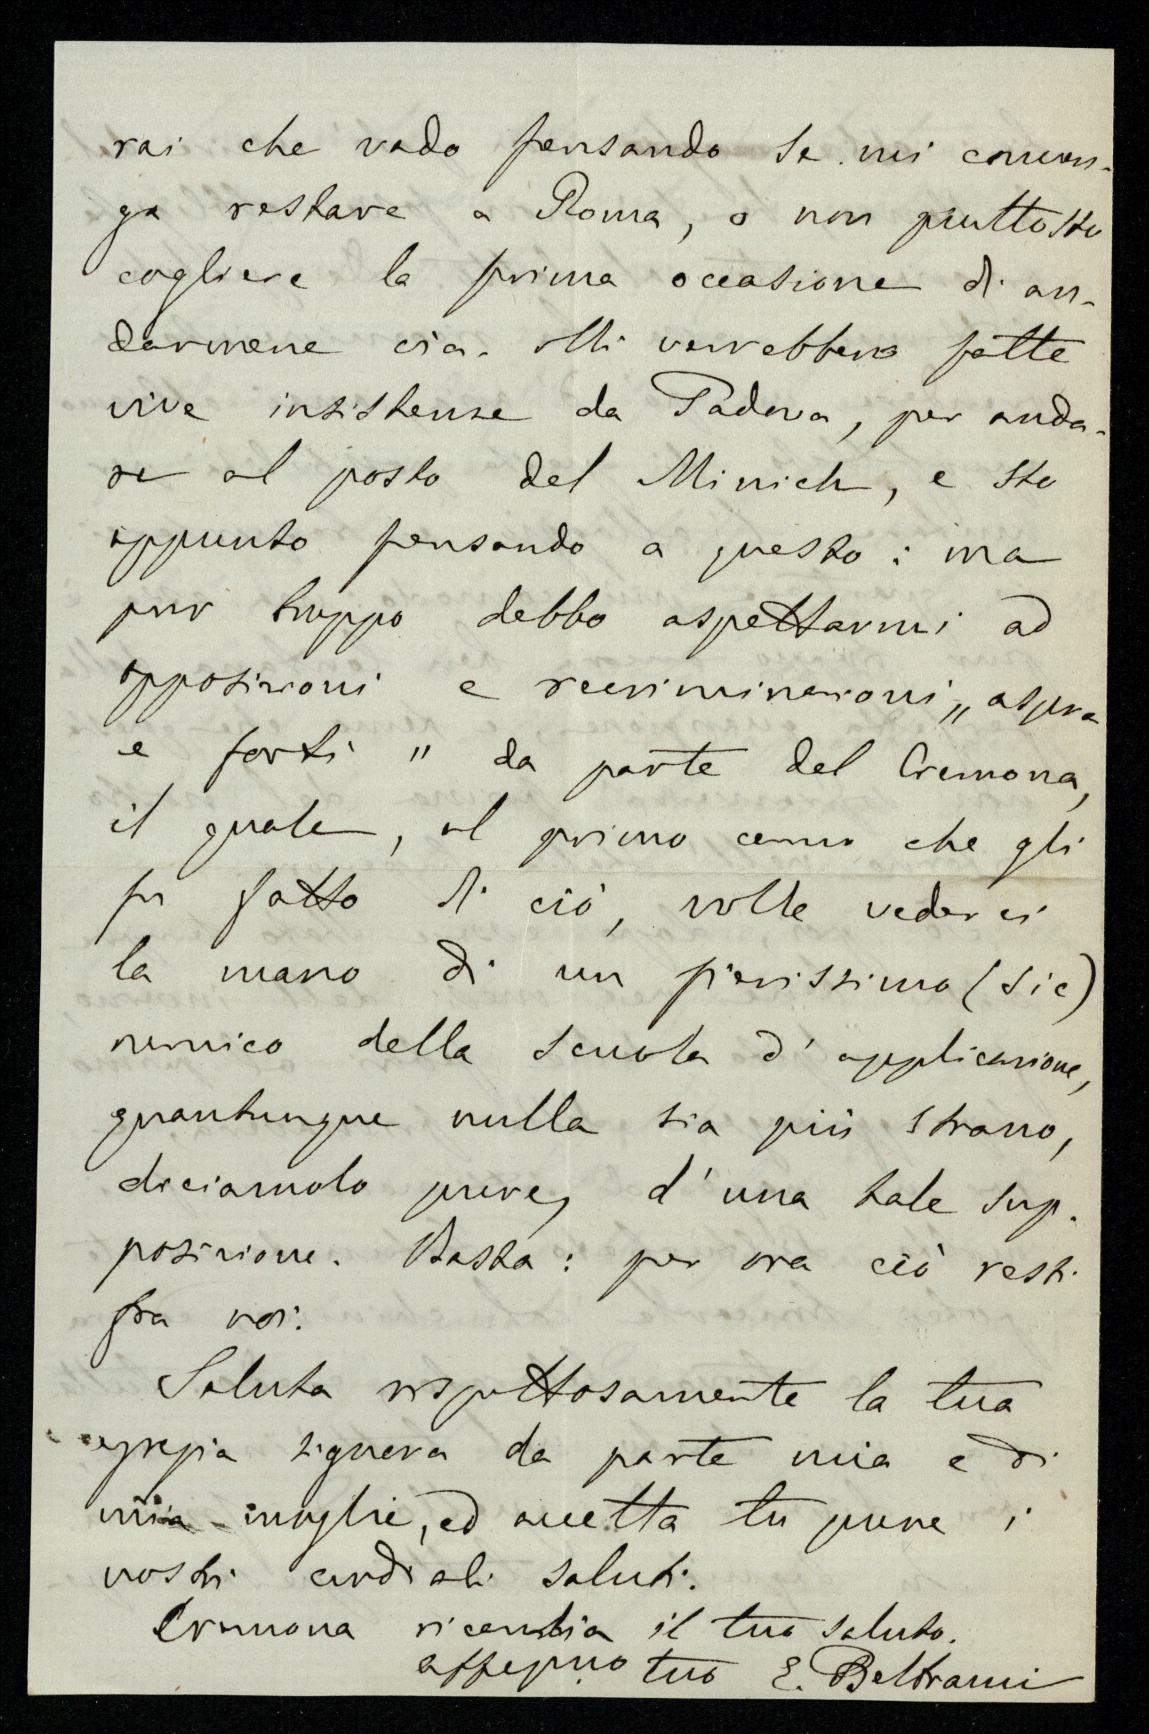 rai che vado pensando se mi conven-
ga restare a Roma, o non piuttosto
cogliere la prima occasione di an-
darmene via. Mi verrebbero fatte
vive insistenze da Padova, per anda-
re al posto del Minich, e sto
appunto pensando a questo: ma
pur troppo debbo aspettarmi ad
opposizioni e recriminazioni „aspra
e forti" da parte del Cremona,
il quale, al primo cenno che gli
fu fatto di ciò, volle vederci
la mano di un fierissimo (sic)
nemico della scuola d'applicazione,
quantunque nulla sia più strano,
diciamolo pure, d'una tale sup-
posizione. Basta: per ora ciò resti
fra noi.
Saluta rispettosamente la tua
egregia signora da parte mia e di
mia moglie, ed accetta tu pure i
nostri cordiali saluti.
Cremona ricambia il tuo saluto.
affezmo tuo E. Beltrami